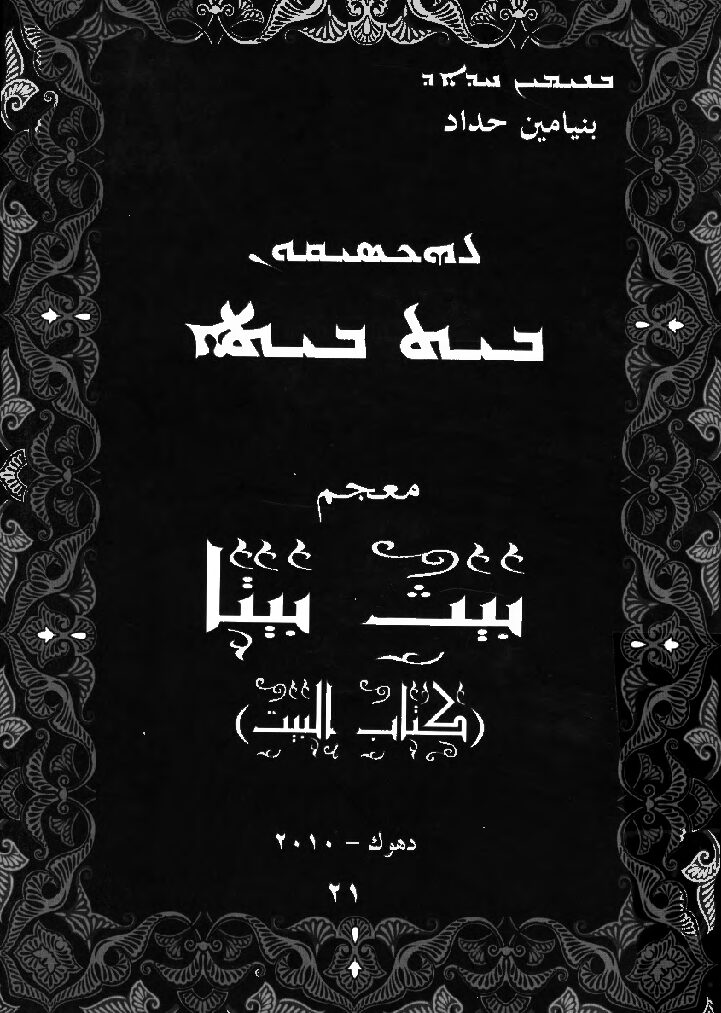 ܒܢܝܡܝܢ ܚܕܐܕ
بنيامين حداد
ܠܗܟܣܝܩܘܢ
ܒܝܬ ܒܝܬܐ
معجم
بَيث بَيتا
(كتاب البيت)
دهوك - ٢٠١٠
٢١